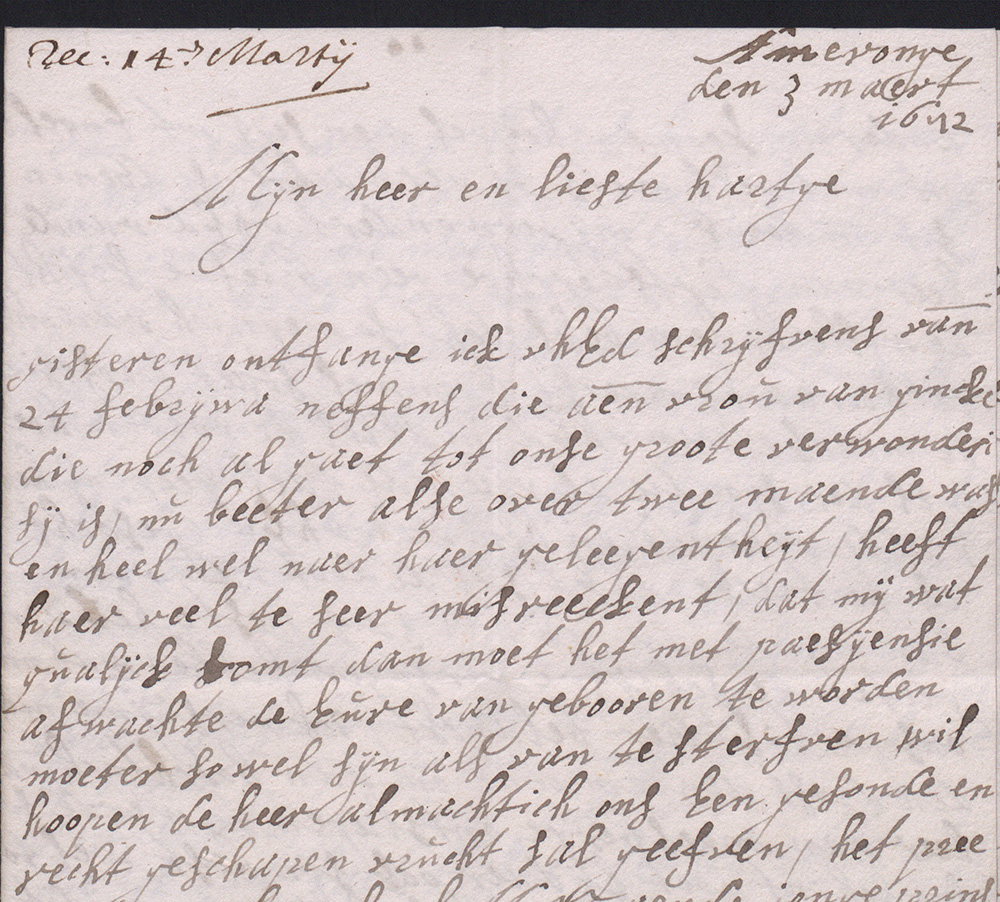 Rec: 14 Martij
Ameronge
den 3 maert
1672
Mijn heer en liefste hartge
gisteren ontfange ick uhEd schrijfvens van
24 febrijwa neffens die aen vrou van ginckel
die noch al gaet tot onse groote verwonderi
sy is, nu beeter alse over twee maende was
en heel wel naer haer geleegentheyt, heeft
haer veel te seer misreeckent, dat mij wat
qualijck komt dan moet het met paesyensie
afwachte de Eure van gebooren te worden
moeter so wel sijn als van te sterfven wil
hoopen de heer almachtich ons Een gesonde en
recht geschapen vrucht sal geefven, het pree
jonge prins